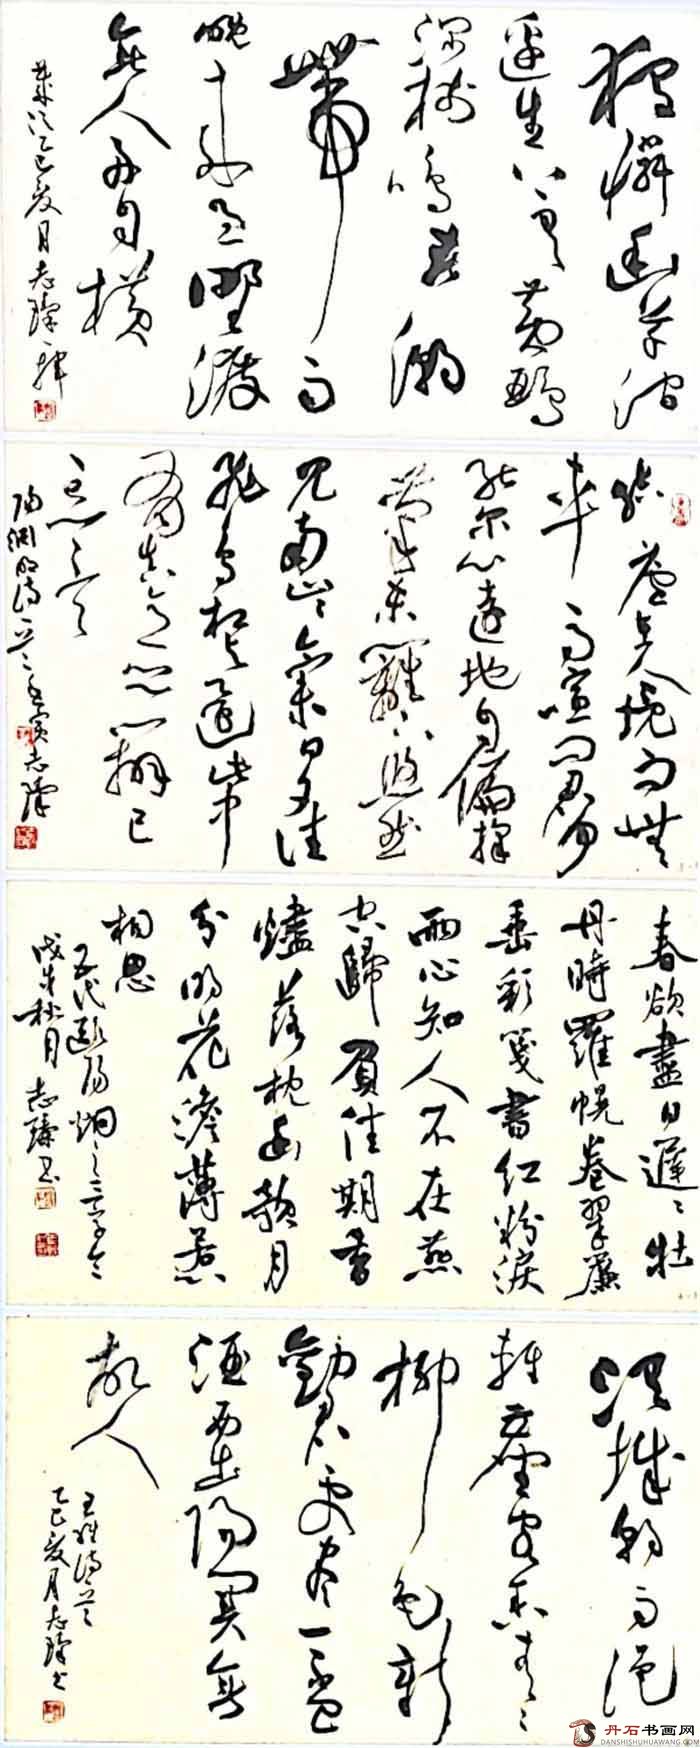 獨憐幽草澗
邊生上有黃鸝
深樹鳴春潮
帶雨
晚來急野渡
無人舟自橫
乙巳夏月志臻一揮
結廬在人境而無
車馬喧問君何
能尔心遠地自偏採
菊東籬下悠然
見南山山氣日夕佳
飛鳥相與還此中
有真意欲辨已
忘言
陶淵明詩一首壬寅志臻
春欲盡日遲々牡
丹時羅幌卷翠簾
垂彩箋書紅粉淚
兩心知人不在燕
空歸負佳期香
燼落枕函欹月
分明花澹薄惹
相思
五代歐陽炯之三字令
秋月志臻書
渭城朝雨浥
輕塵客舍青々
柳色新
勸君更盡一盃
酒西出陽關無
故人
王維詩一首
乙巳夏月志臻書
丹石书画网
DANSHISHUHUAWANG.COM